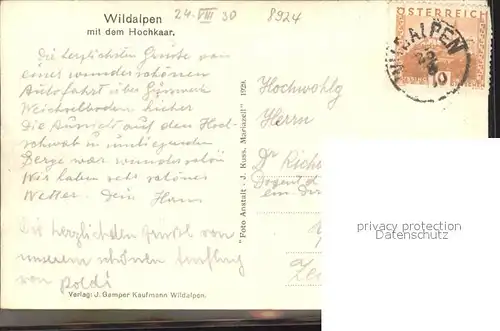 Wildalpen
mit dem Hochkaar.
24. VIII 30
8924
ÖSTERREICH
WILDALPEN
Die herzlichsten Grüße von
einer wunderschönen
Autofahrt über
Weichselboden hieher
Die Aussicht auf den Hoch-
schwab u umliegenden
Berge war wunderschön
Wir haben sehr schönes
Wetter. Dein Hans
Die herzlichsten Grüße von
unserem schönen Ausflug
von Poldi
Verlag: J. Gamper Kaufmann Wildalpen.
"Foto Anstalt . J. Kuss. Mariazell" 1929.
Hochwohlg
Herrn
Dr Richa
Dozent
privacy protection
watermark